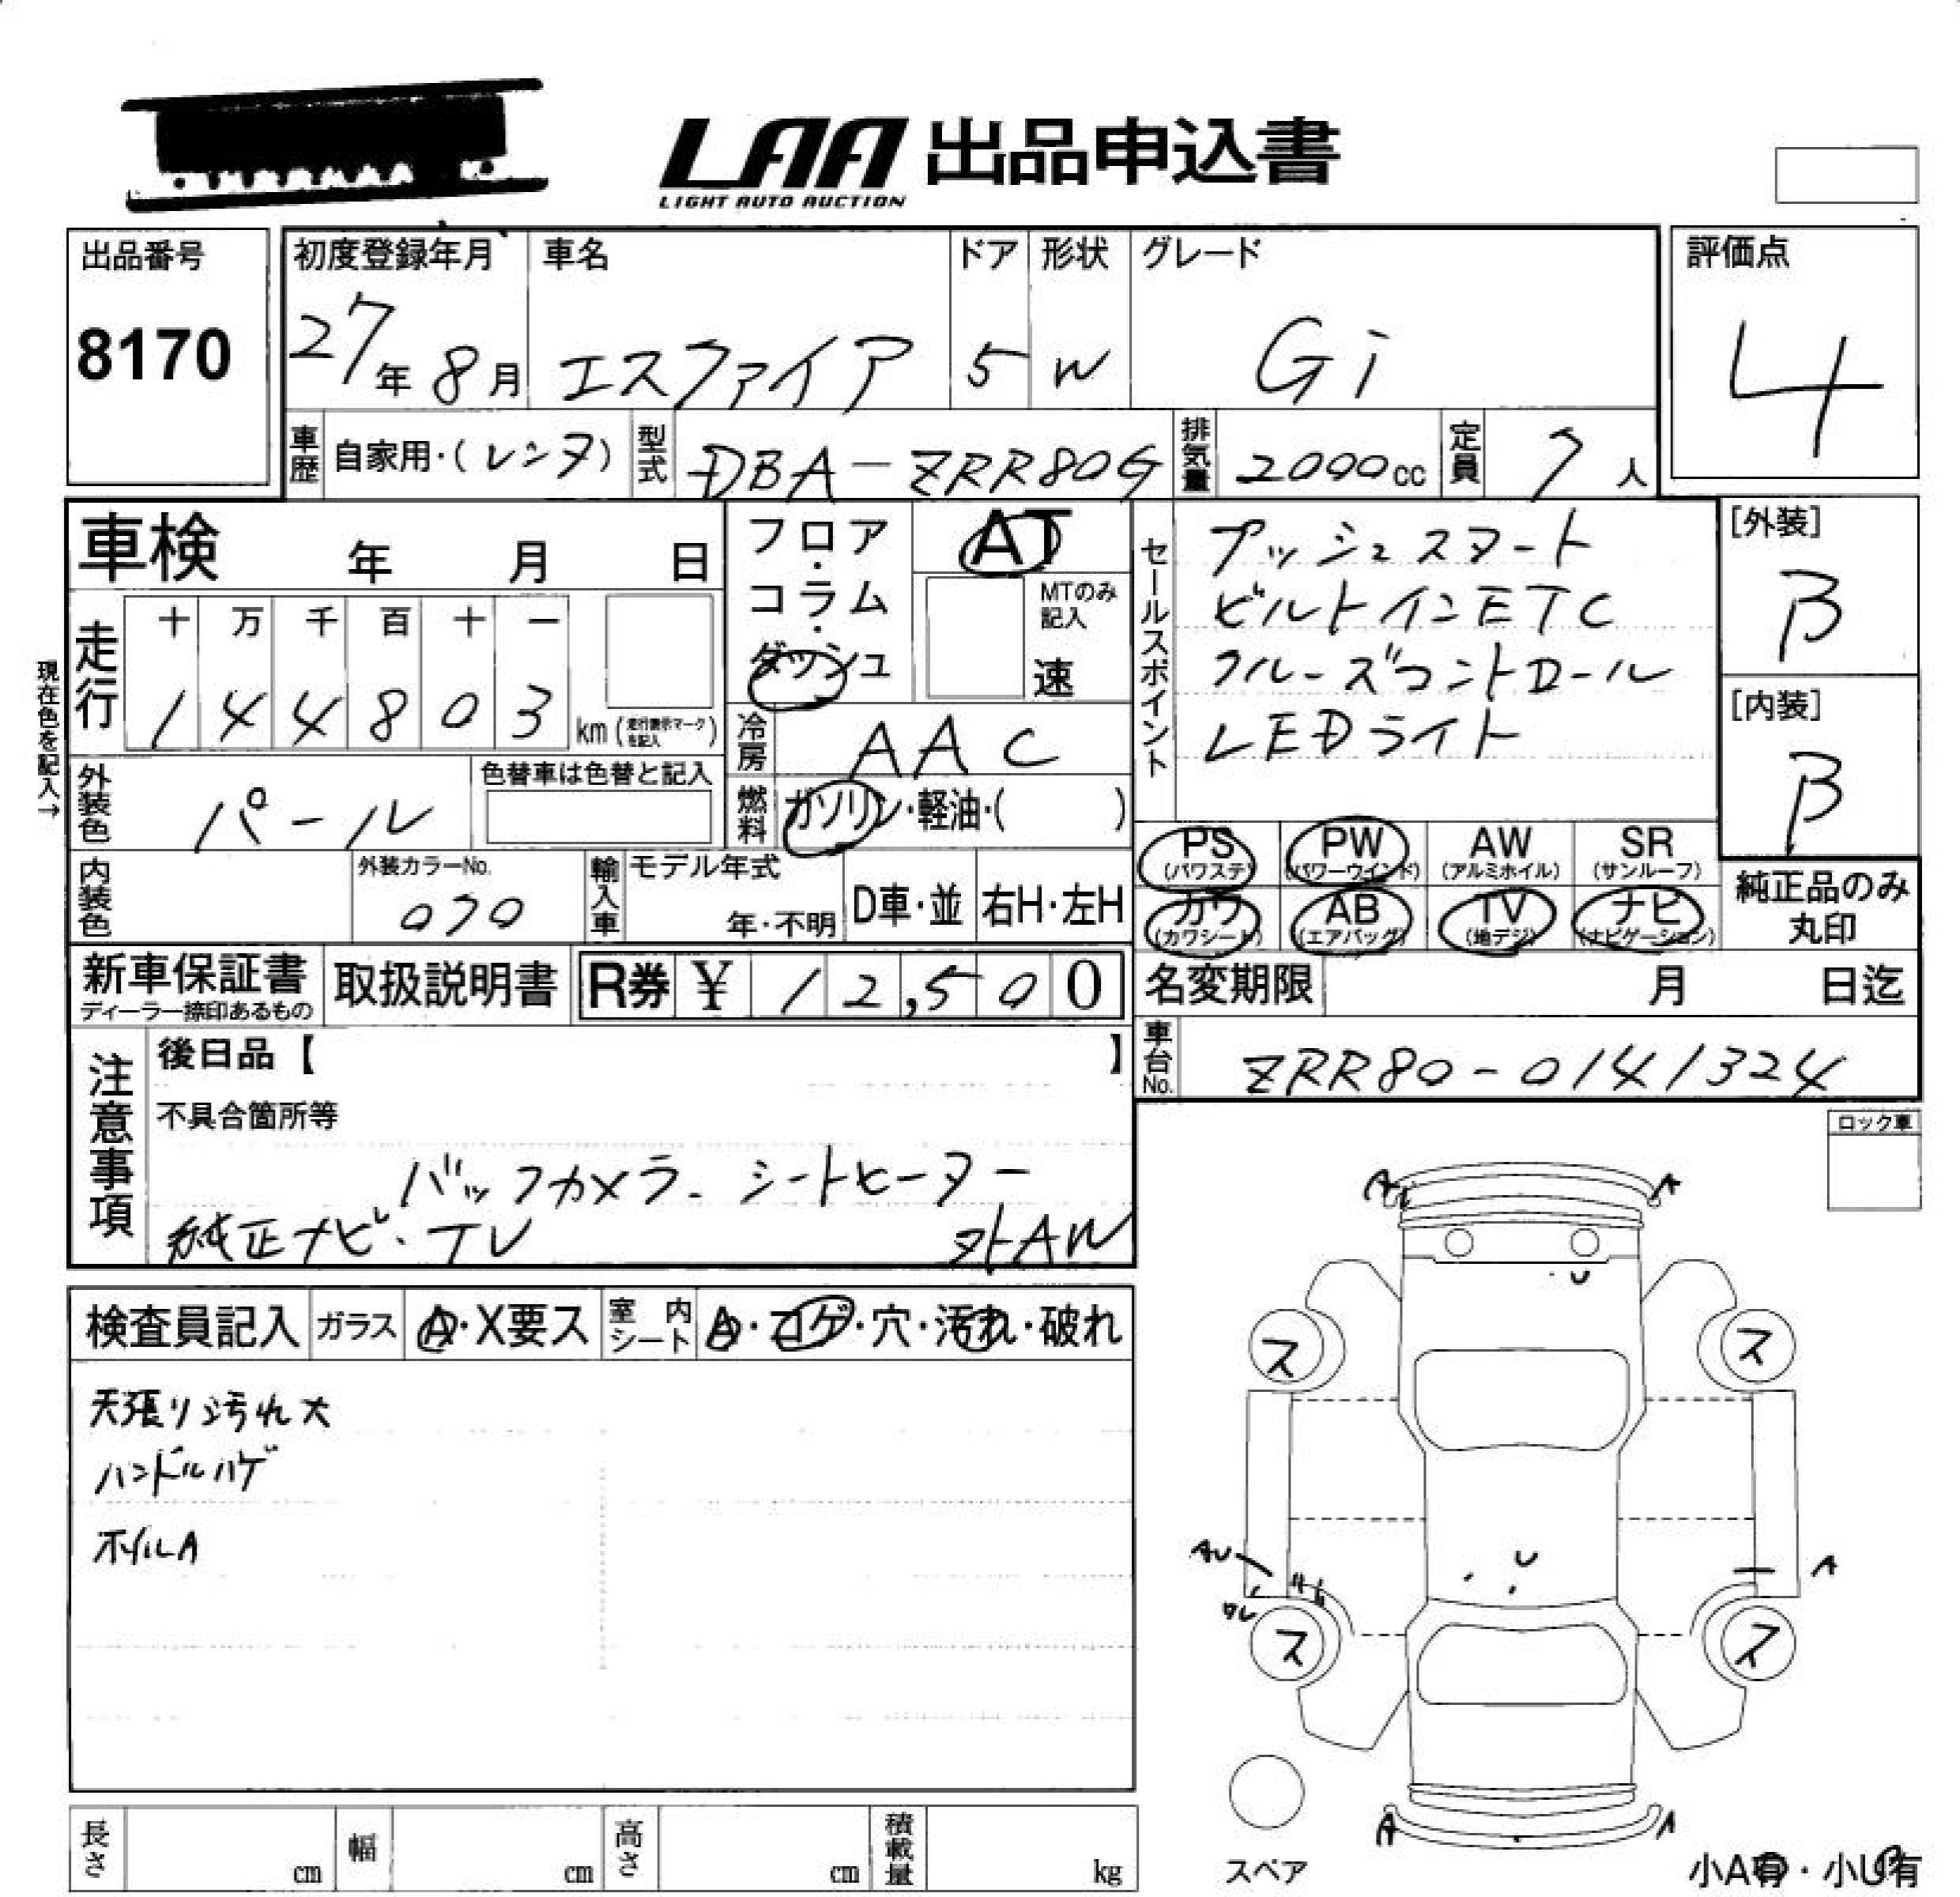 LAA 出品申込書
LIGHT AUTO AUCTION
出品番号
8170
初度登録年月 車名 ドア 形状 グレード
27年 8月 エスファイア 5 W Gi
評価点
4
車歴 自家用・(レンタ) 型式 DBA-ZRR80G 排気量 2000cc 定員 7人
車検 年 月 日
フロア・コラム・ダッシュ
AT
MTのみ記入
速
セールスポイント
プッシュスタート
ビルトインETC
クルーズコントロール
LEDライト
[外装]
B
[内装]
B
現在色を記入→
走行 十 万 千 百 十 一
1 4 4 8 0 3 km (走行表示マークを記入)
冷房 AAC
外装色 パール 色替車は色替と記入
燃料 ガソリン・軽油・( )
PS PW AW SR
(パワステ) (パワーウインド) (アルミホイル) (サンルーフ)
カワ AB TV ナビ
(カワシート) (エアバッグ) (地デジ) (ナビゲーション)
純正品のみ
丸印
内装色 外装カラーNo. 070 輸入車 モデル年式 年・不明 D車・並 右H・左H
新車保証書 取扱説明書 R券 ¥ 12,500
ディーラー捺印あるもの
名変期限 月 日迄
車台No. ZRR80-0141324
注意事項
後日品【 】
不具合箇所等
バックカメラ シートヒーター
純正ナビ・TV 外AW
ロック車
検査員記入 ガラス A・X要ス 室内シート A・コゲ・穴・汚れ・破れ
天張り汚れ大
ハンドルハゲ
ホイルA
A A
U
ス ス
U
AU A
ワレ
ス ス
A A
スペア
小A有・小U有
長さ cm 幅 cm 高さ cm 積載量 kg